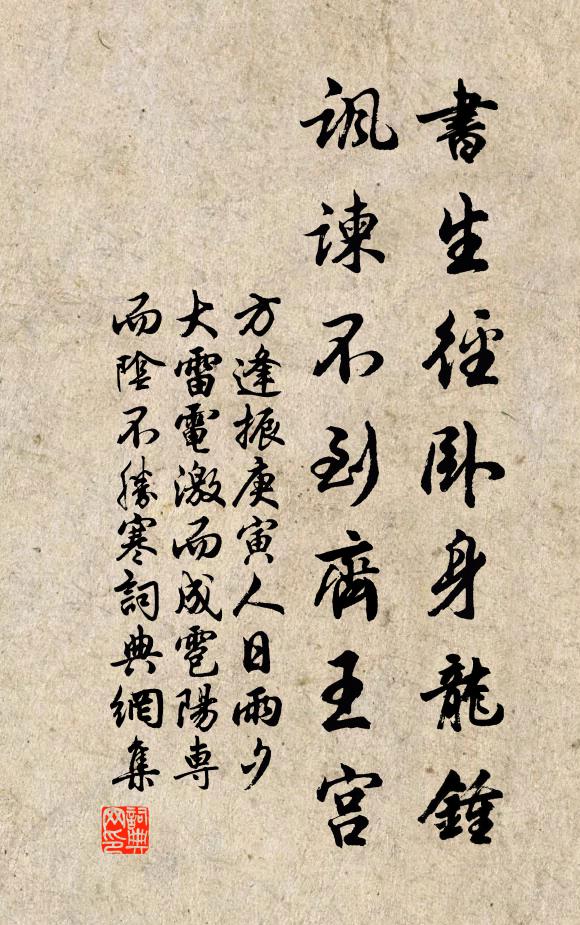 書生徑卧身龍鍾
諷諫不到齊王宮
方逢振庚寅人日雨夕
大雷電激而成雹陽専
而陰不勝寒詞典網集
詞典
网印